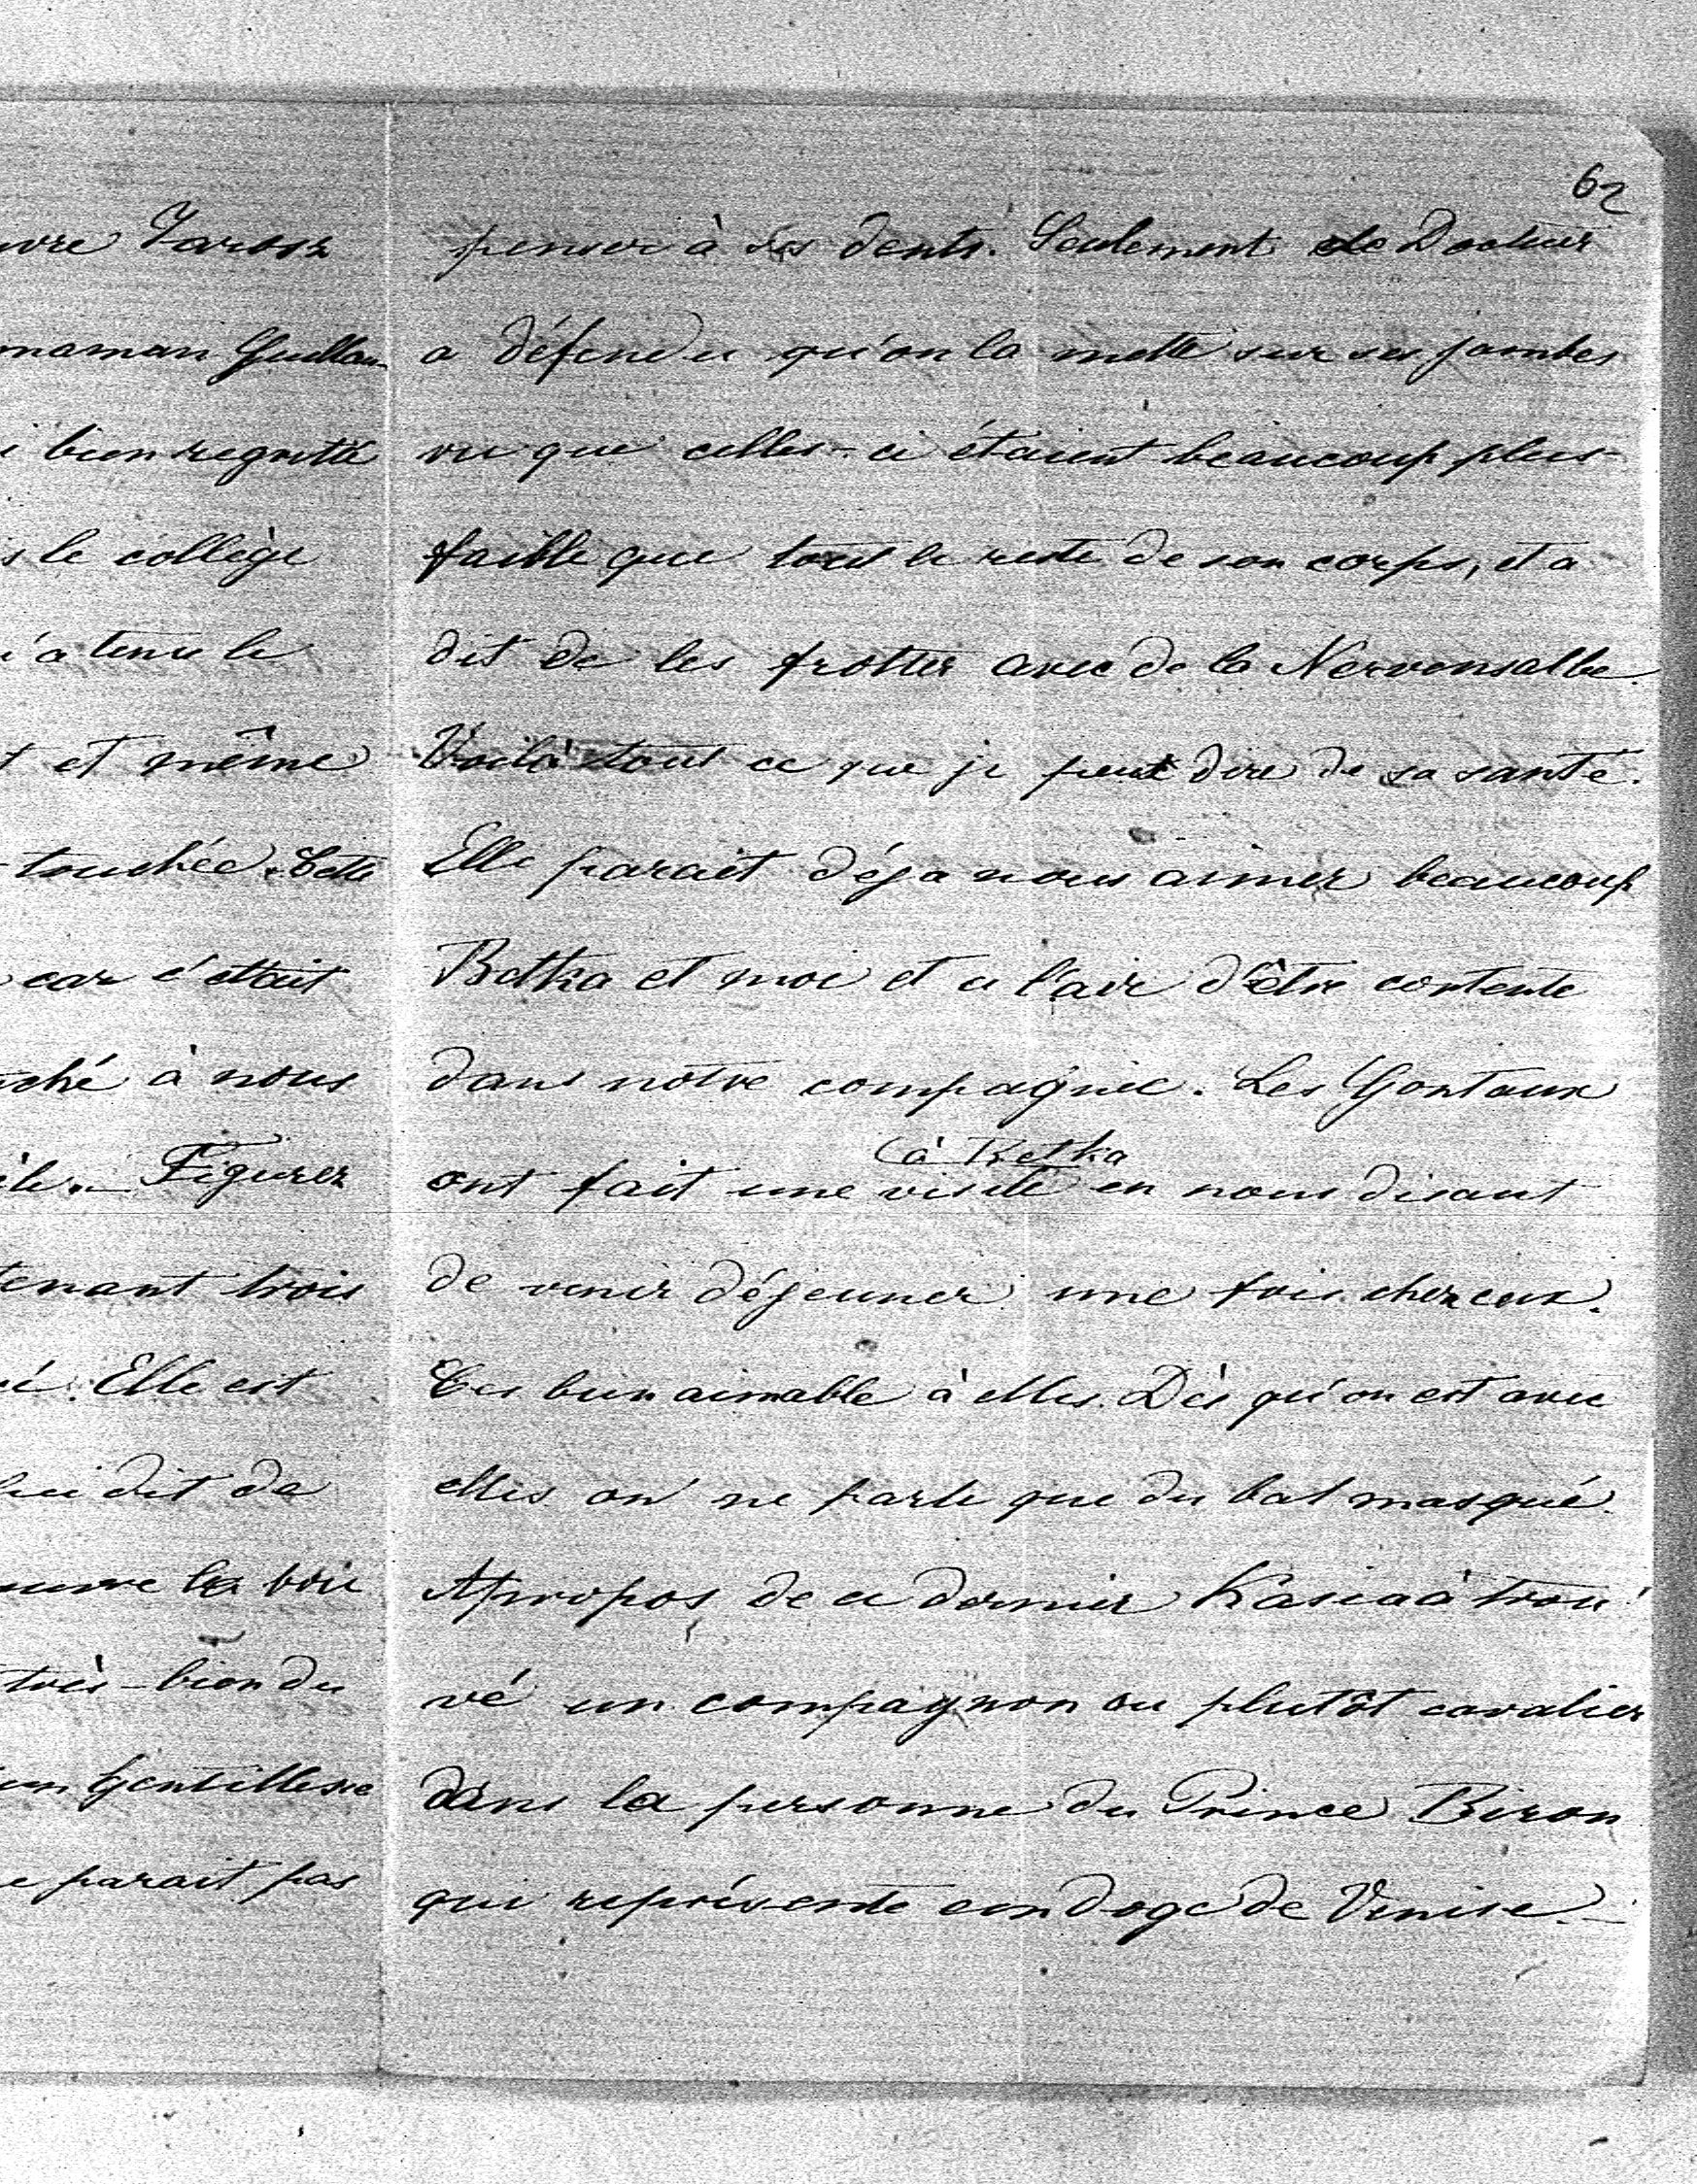 62
penser à ses dents. Seulement le Docteur
a défendu qu'on la mette sur ses jambes
vu que celles-ci étaient beaucoup plus
faible que tout le reste de son corps, et a
dit de les frotter avec de la Nervensalbe.
Voilà tout ce que je peut dire de sa santé.
Elle parait déja nous aimer beaucoup
Betka et moi et a l'air d'être contente
dans notre compagnie. Les Gontaux
à Betka
ont fait une visite en nous disant
de venir déjeuner une fois chez eux.
C'es bien aimable à elles. Dès qu'on est avec
elles on ne parle que du bal masqué.
Apropos de ce dernier Kasia à trou
vé un compagnon ou plutôt cavalier
dans la personne du Prince Biron
qui représente un doge de Venise.—
maman Guillau
bien regretté
le collège
a tenu le
et même
touchée. Cette
car c'ettait
à nous
Figurez
tenant trois
Elle est
lui dit de
très-bien du
gentillesse
parait pas